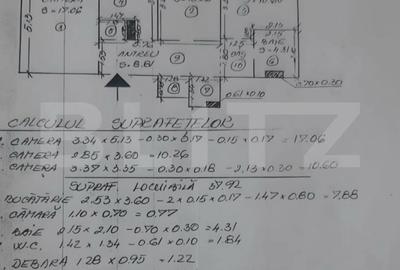 S=17.06
1.47
3.76
ANTREU
S=8.81
2.15
2.15
BAIE
S=4.31
1.25
0.70x0.30
0.61x0.10
BLITZ
CALCULUL SUPRAFEȚELOR
CAMERA 3.34 x 5.13 - 0.30 x 0.17 - 0.15 x 0.17 = 17.06
CAMERA 2.85 x 3.60 = 10.26
CAMERA 3.37 x 3.35 - 0.30 x 0.18 - 2.13 x 0.30 = 10.60
SUPRAF. LOCUIBILĂ 37.92
BUCĂTĂRIE 2.53 x 3.60 - 2 x 0.15 x 0.17 - 1.47 x 0.80 = 7.88
CĂMARĂ 1.10 x 0.70 = 0.77
BAIE 2.15 x 2.10 - 0.70 x 0.30 = 4.31
W.C. 1.42 x 1.34 - 0.61 x 0.10 = 1.84
DEBARA 1.28 x 0.95 = 1.22